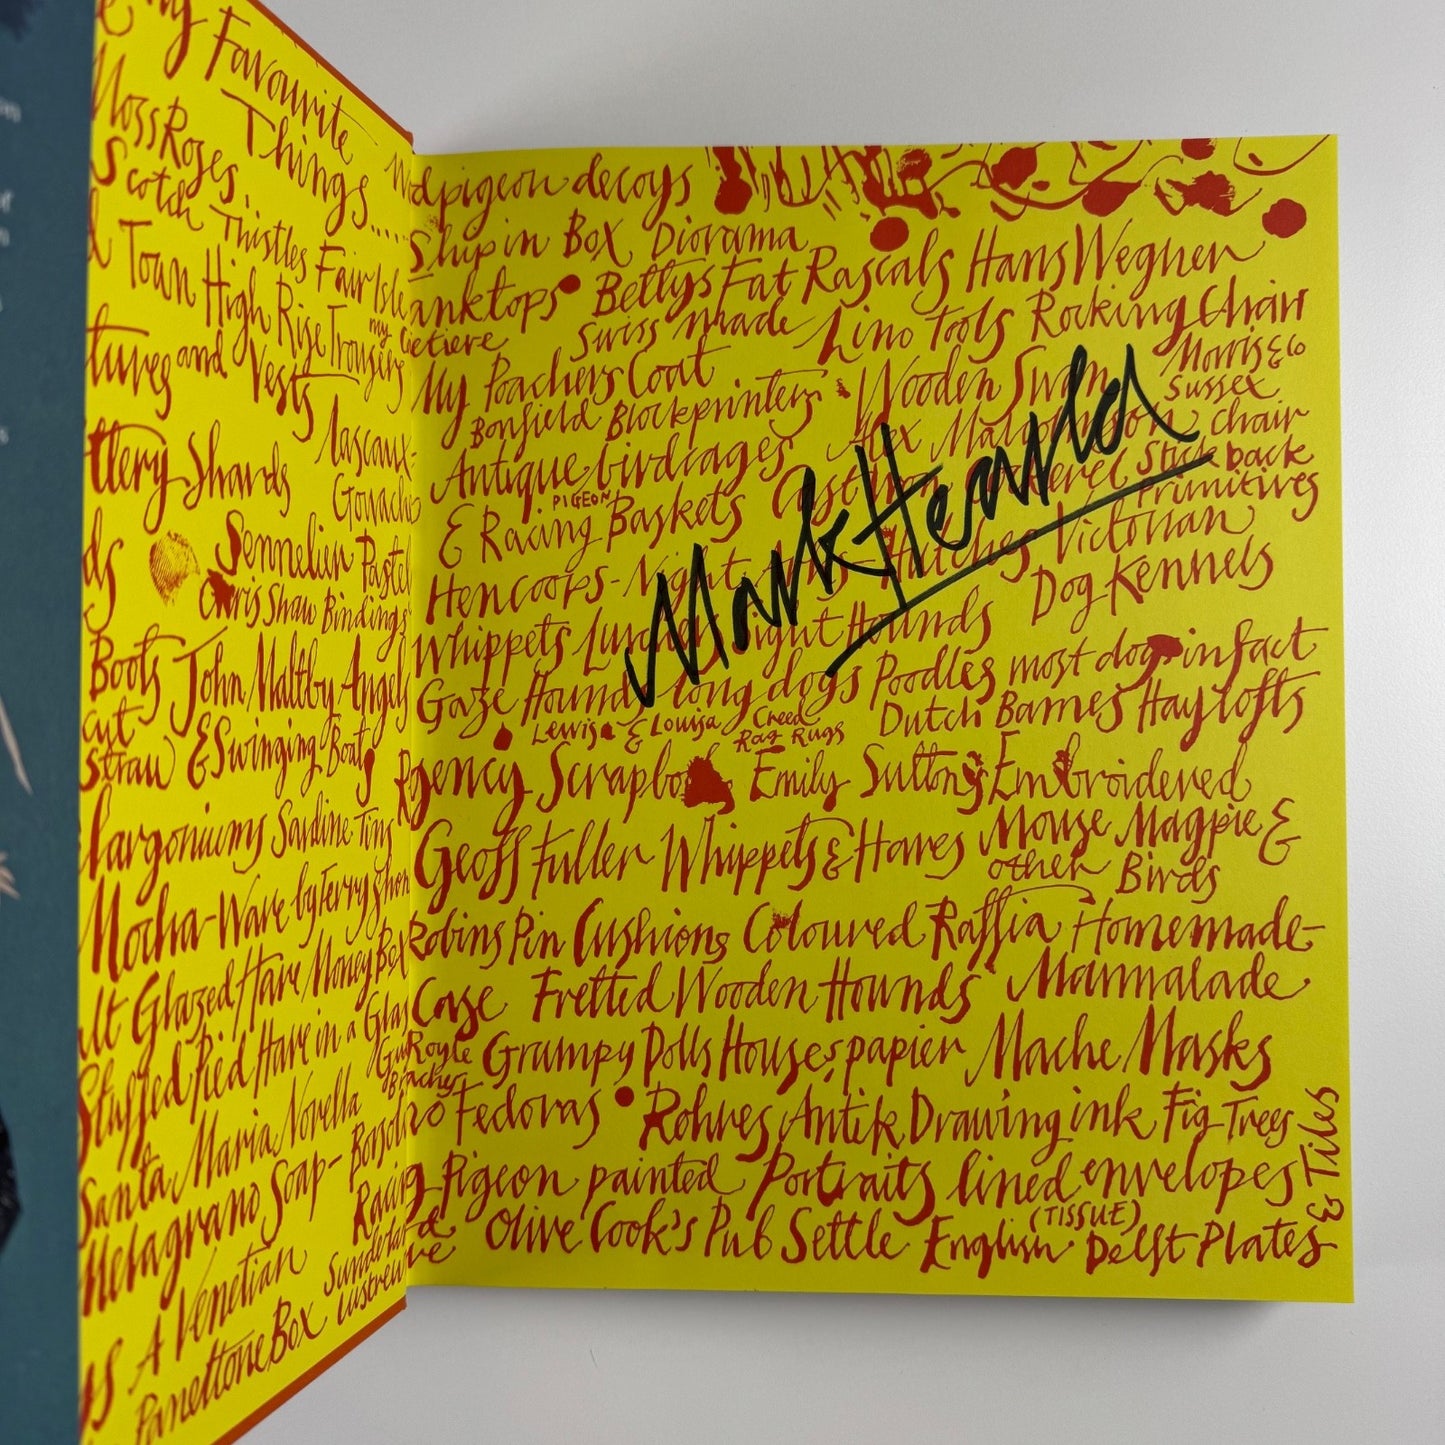 Favourite
Things.....
Moss Roses,
Scotch Thistles Fair Isle
Town High Rise Trousers
my
and Vests
Shards
Lascaux
Gouache
Sennelier Pastel
Chris Shaw Bindings
Boots John Maltby Angels
cut
straw & Swinging Boats
Sardine Tins
Mocha-Ware by Terry Shone
Glazed Hare Money Box
Stuffed Pied Hare in a Glass
Santa Maria Novella
Melagrano Soap-
A Venetian
Panettone Box
pigeon decoys
Ship in Box Diorama
Tanktops Bettys Fat Rascals Hans Wegner
Swiss made Lino Tools Rocking Chair
My Poachers Coat
Bonfield Blockprinters Wooden Swan Morris & Co
Sussex
Antique birdcages Alex Malcolmson chair
PIGEON
& Racing Baskets Cast Iron Cockerel Stick back
primitives
Hencoops - Night Hutches Victorian
Whippets Lurchers Sight Hounds Dog Kennels
Gaze Hounds long dogs Poodles most dogs in fact
Lewis & Louisa Creed
Rag Rugs
Dutch Barnes Haylofts
Regency Scrapbooks Emily Suttons Embroidered
Geoff Fuller Whippets & Hares Mouse Magpie &
other Birds
Robins Pin Cushions Coloured Raffia Homemade-
Case Fretted Wooden Hounds Marmalade
Royle Grumpy Dolls Houses, papier Mache Masks
Borsolino Fedoras Rohres Antik Drawing ink Fig Trees
Racing Pigeon painted Portraits lined envelopes
(TISSUE)
Sunderland
Lustreware
Olive Cook's Pub Settle English Delft Plates
& Tiles
Mark Hearld